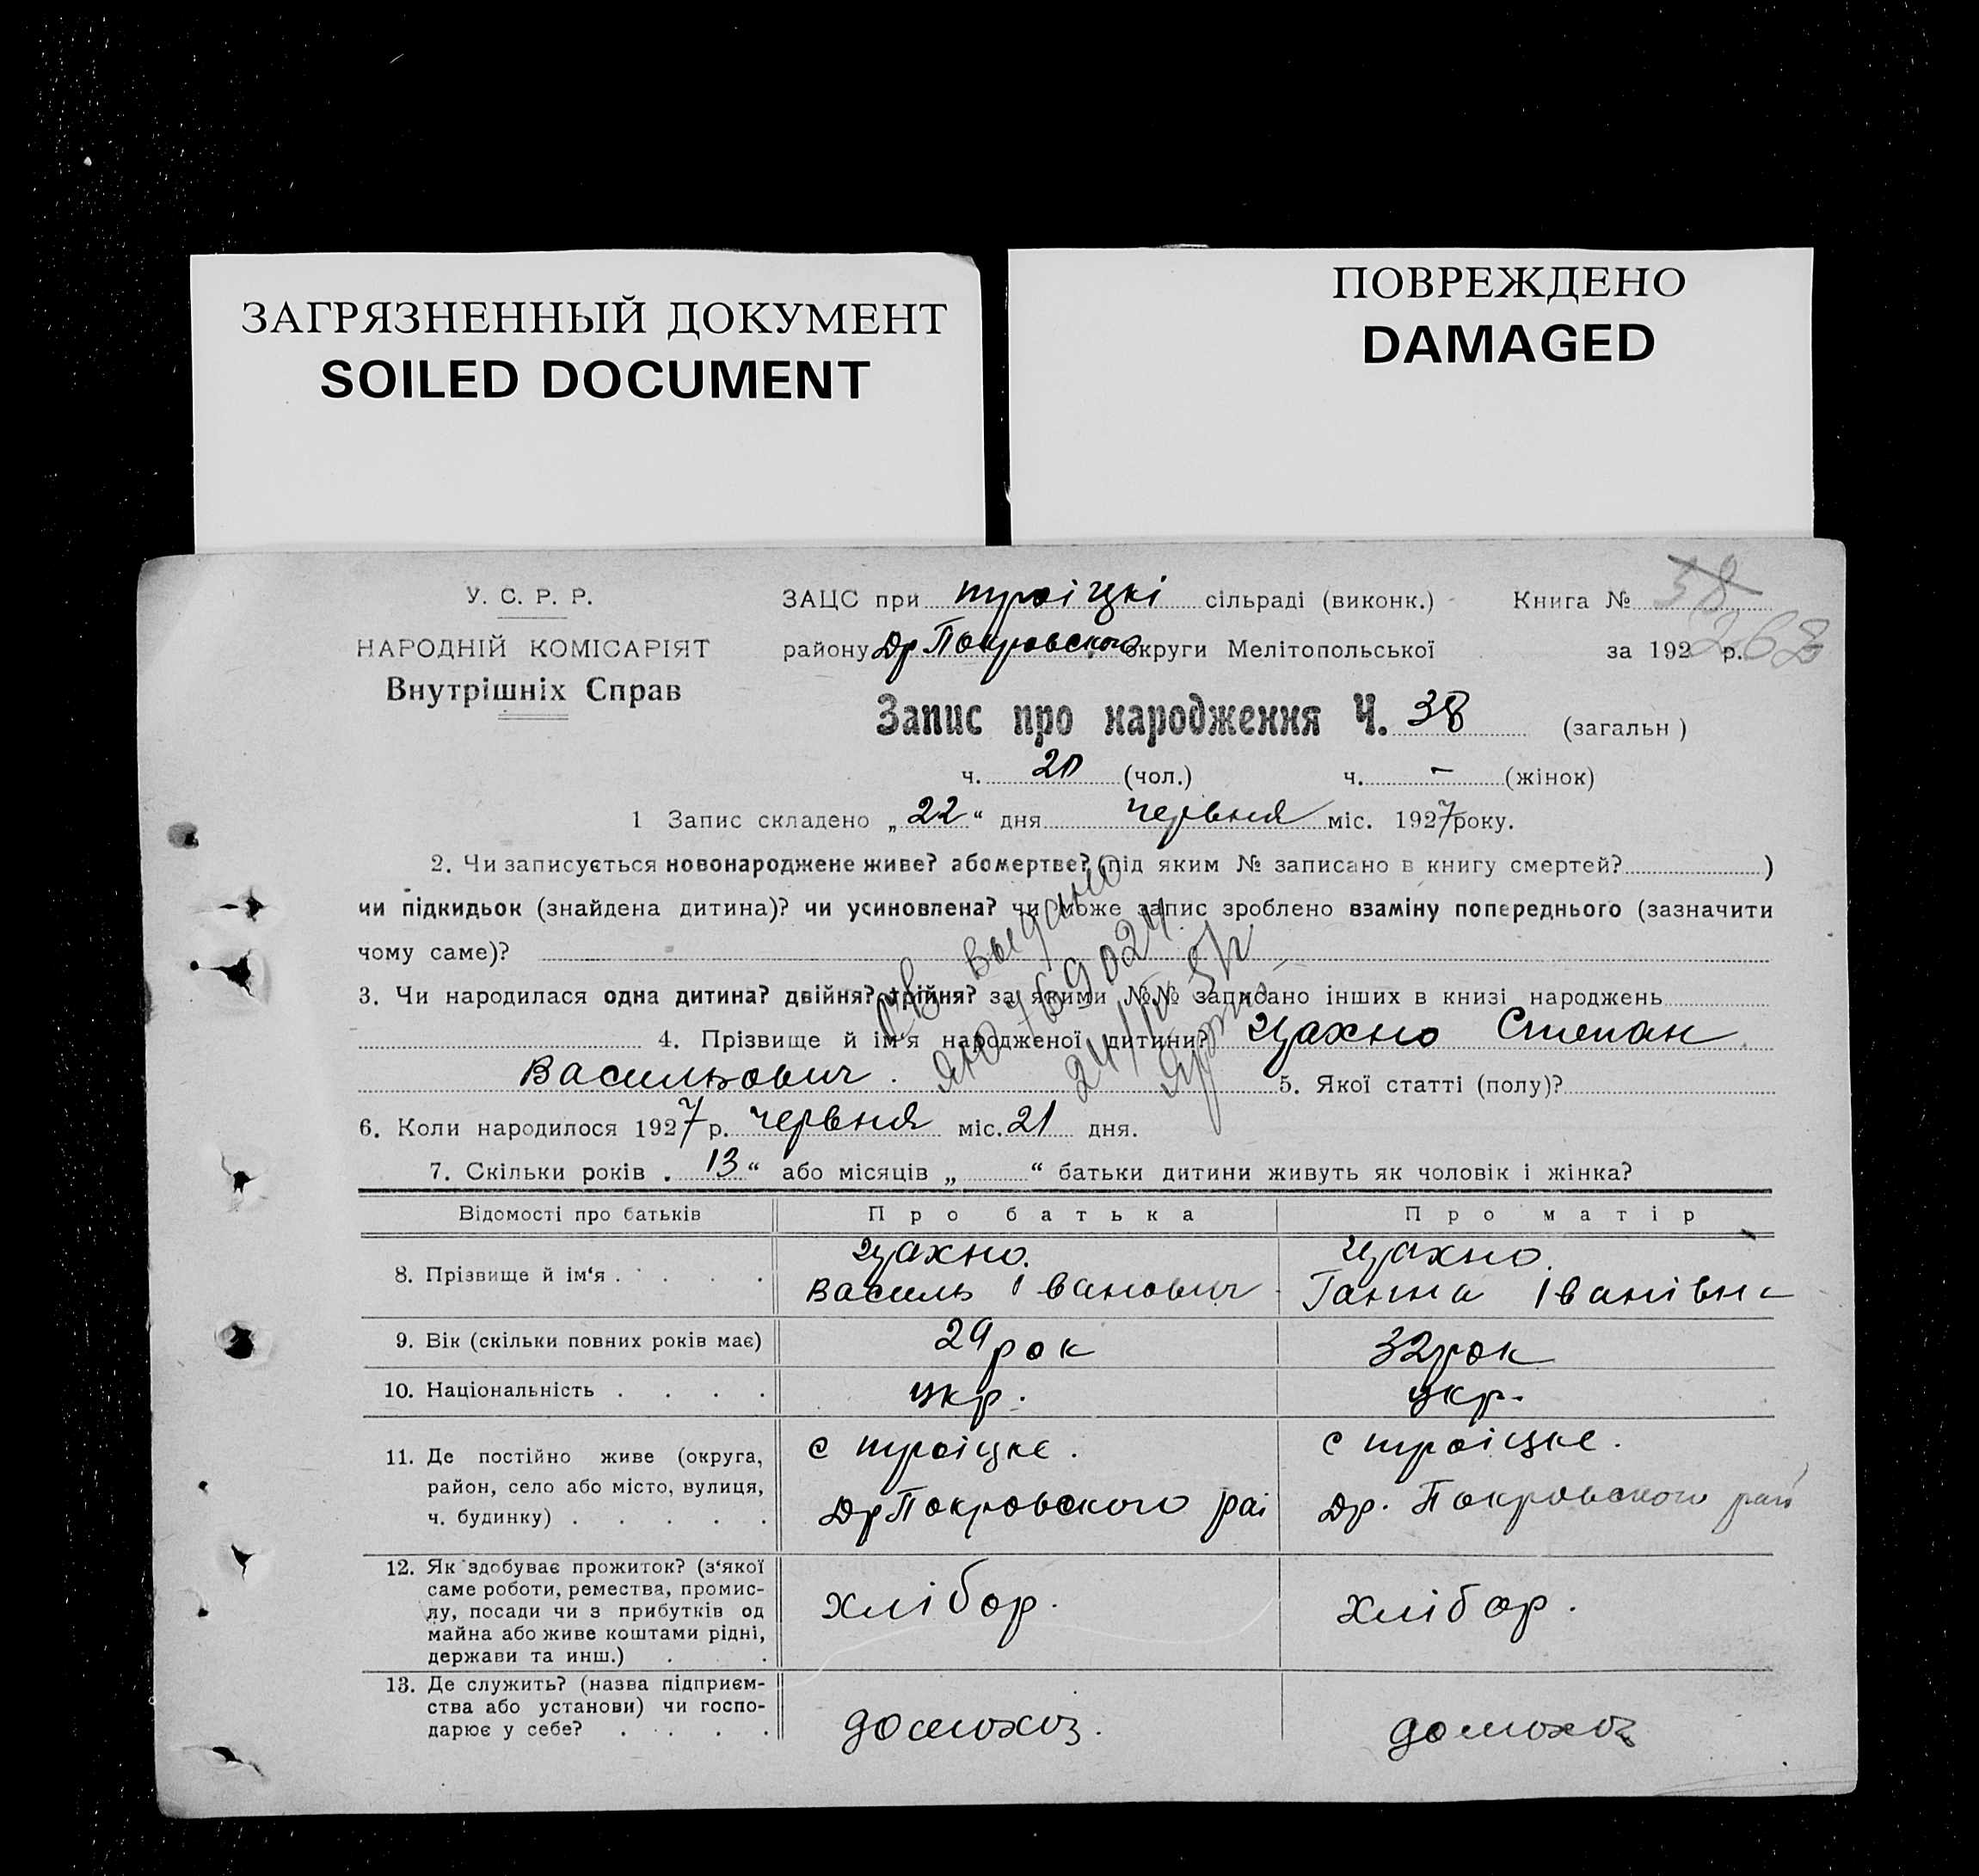 ЗАГРЯЗНЕННЫЙ ДОКУМЕНТ
SOILED DOCUMENT
ПОВРЕЖДЕНО
DAMAGED
У. С. Р. Р.
НАРОДНІЙ КОМІСАРІЯТ
Внутрішніх Справ
ЗАЦС при троіцкі сільраді (виконк.) Книга № 38
району Др Покровского округи Мелітопольської за 192 р. 268
Запис про народження Ч. 38 (загальн)
ч. 20 (чол.) ч. - (жінок)
1 Запис складено „22“ дня червня міс. 1927 року.
2. Чи записується новонароджене живе? або мертве? (під яким № записано в книгу смертей? )
чи підкидьок (знайдена дитина)? чи усиновлена? чи може запис зроблено взаміну попереднього (зазначити
чому саме)?
3. Чи народилася одна дитина? двійня? трійня? за якими №№ записано інших в книзі народжень
4. Прізвище й ім'я народженої дитини? Цахно Степан
Васильович. 5. Якої статті (полу)?
6. Коли народилося 1927 р. червня міс. 21 дня.
7. Скільки років „13“ або місяців „ “ батьки дитини живуть як чоловік і жінка?
выдано
769024
Відомості про батьків Про батька Про матір
8. Прізвище й ім'я . . . . . Цахно. Василь Іванович Цахно. Ганна Іванівна
9. Вік (скільки повних років має) 29 рок 32 рок
10. Національність . . . . укр. укр.
11. Де постійно живе (округа,
район, село або місто, вулиця,
ч. будинку) . . . . .
с троіцке.
Др Покровского раі
с троіцке.
Др. Покровского рай
12. Як здобуває прожиток? (з'якої
саме роботи, ремества, промис-
лу, посади чи з прибутків од
майна або живе коштами рідні,
держави та инш.) . .
хлібор. хлібор.
13. Де служить? (назва підприєм-
ства або установи) чи госпо-
дарює у себе? . . . .
домохоз. домохоз